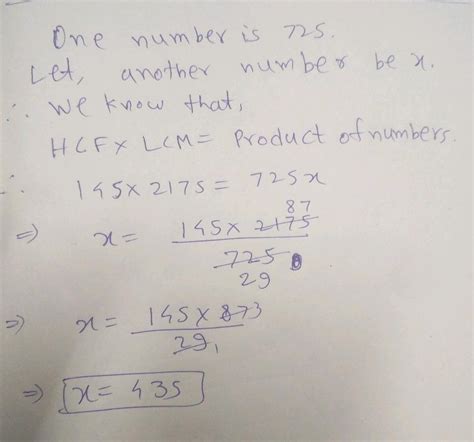 One number is 725.
Let, another number be x.
∴ We know that,
HCF x LCM = Product of numbers.
∴ 145 x 2175 = 725x
87
⇒ x = 145 x 2175
725
29
⇒ x = 145 x 87 3
29 1
⇒ x = 435